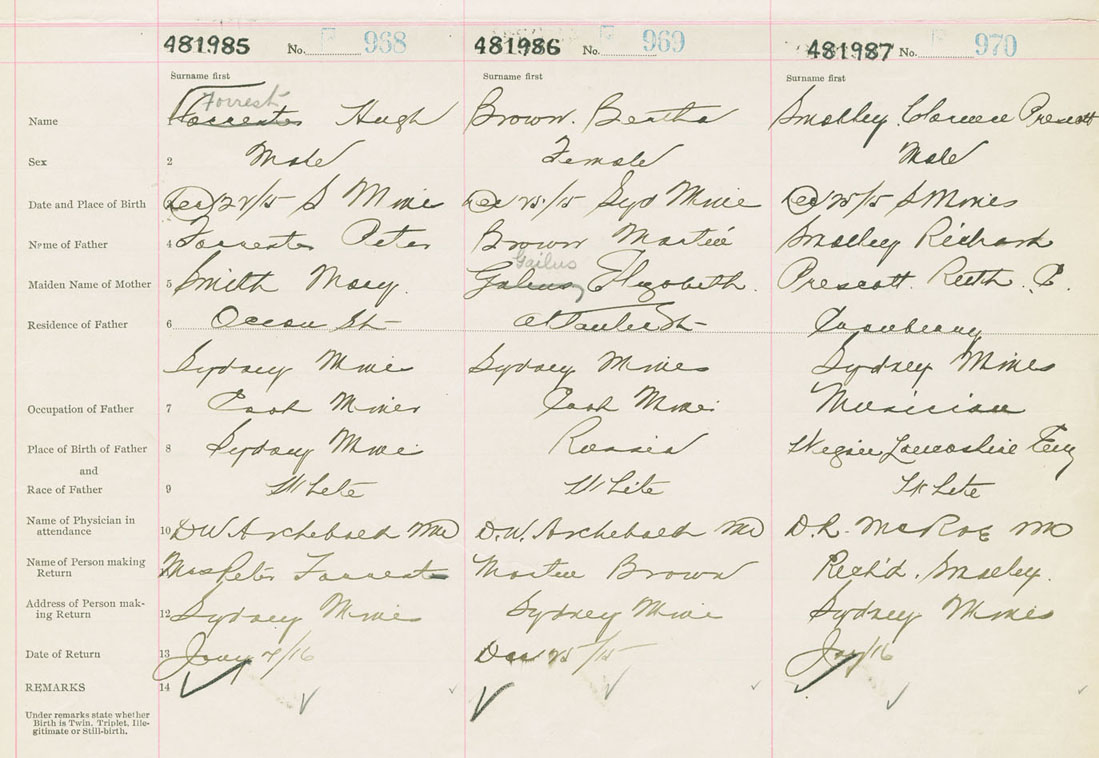 481985 No. 968 481986 No. 969 481987 No. 970
Surname first Surname first Surname first
Forrest
Name Forrester Hugh Brown. Bertha Smalley. Clarence Prescott
Sex 2 Male Female Male
Date and Place of Birth Dec 28/15 S Mines Dec 25/15 Syd Mines Dec 25/15 S Mines
Name of Father 4 Forrester Peter Brown Martin Smalley Richard
Gailus
Maiden Name of Mother 5 Smith Mary. Elizabeth. Prescott. Ruth.
Residence of Father 6 Ocean St St Cranberry
Sydney Mines Sydney Mines Sydney Mines
Occupation of Father 7 Coal Miner Coal Miner Musician
Place of Birth of Father 8 Sydney Mines Russia Wigan Lancashire Eng
and
Race of Father 9 White White White
Name of Physician in
attendance 10 D W Archibald MD D. W. Archibald MD D. R. McRae MD
Name of Person making
Return Mrs Peter Forrest Martin Brown Rich'd. Smalley.
Address of Person mak-
ing Return 12 Sydney Mines Sydney Mines Sydney Mines
Date of Return 13 Jany /16 Dec 25/15 /16
REMARKS 14
Under remarks state whether
Birth is Twin, Triplet, Ille-
gitimate or Still-birth.